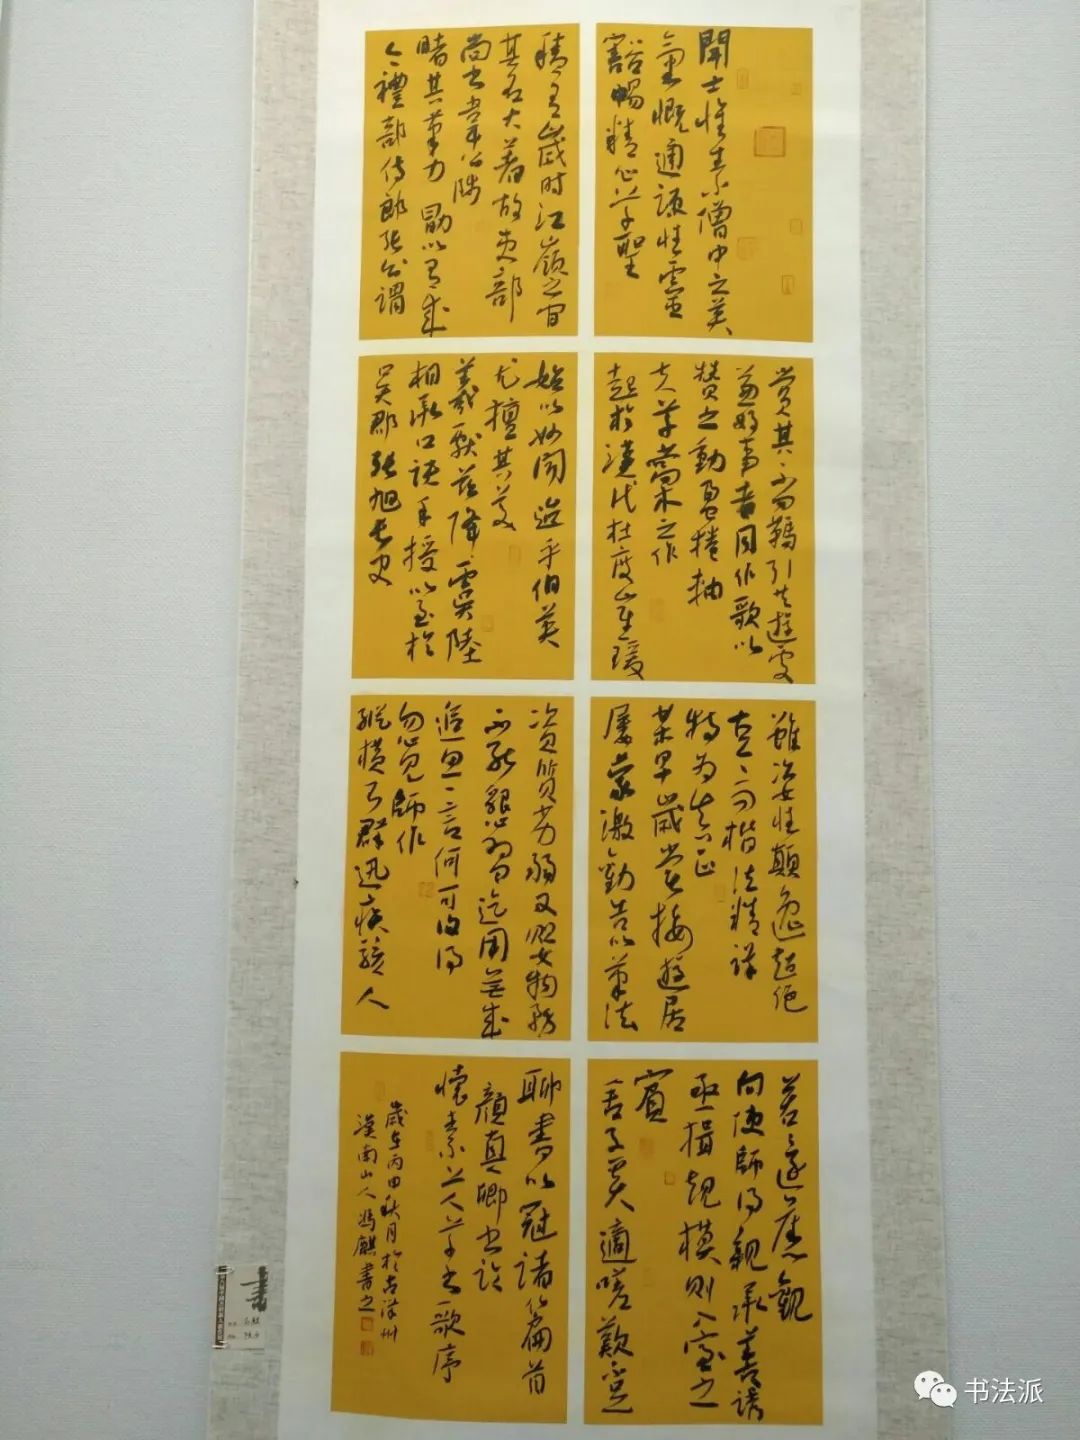 開士懷素僧中之英
氣概通疎性靈
豁暢精心草聖
積有歲時江嶺之間
其名大著故吏部
尚書韋公陟
睹其筆力勖以有成
今禮部侍郎張公謂
賞其不羈引共遊處
兼好事者同作歌以
贊之動盈捲軸
夫草稾之作
起於漢代杜度崔瑗
始以妙聞迨乎伯英
尤擅其美
羲獻茲降虞陸
相承口訣手授以至於
吳郡張旭長史
雖姿性顛逸超絕
古今而楷法精詳
特為真正
某早歲嘗接遊居
屢蒙激勸告以筆法
資質劣弱又嬰物務
不能懇習迄用無成
追思一言何可復得
忽見師作
縱橫不群迅疾駭人
若還舊觀
向使師得親承善誘
亟揖規模則入室之
賓
舍子奚適嗟歎不足
聊書以冠諸篇首
顏真卿書論
懷素上人草書歌序
歲在丙申秋月於古洋州
漢南山人馮麒書之
书法派